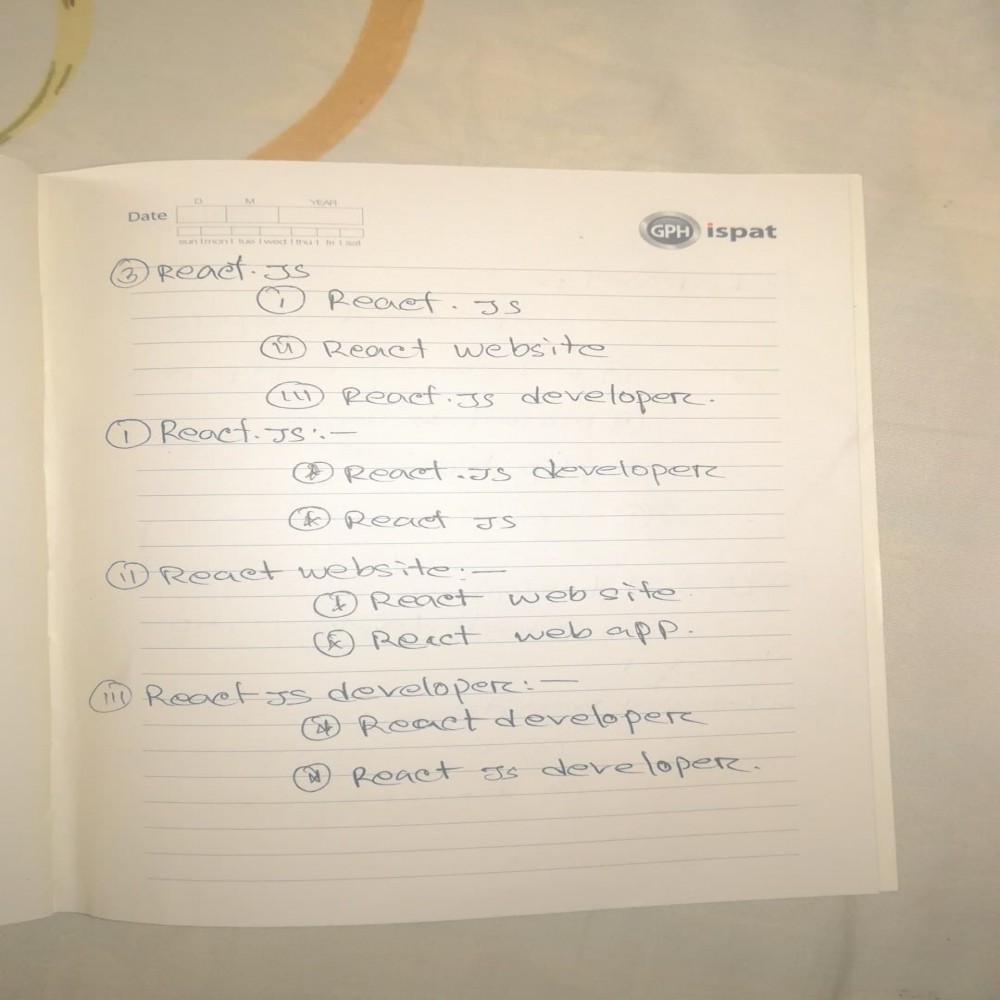 D M YEAR
Date
sun mon tue wed thu fri sat
GPH ispat
③ React.JS
ⓘ React.JS
ⓘⓘ React website
ⓘⓘⓘ React.JS developer.
ⓘ React.JS:-
* React.JS developer
* React JS
ⓘⓘ React website:-
* React web site
* React web app.
ⓘⓘⓘ React JS developer:-
* React developer
* React JS developer.